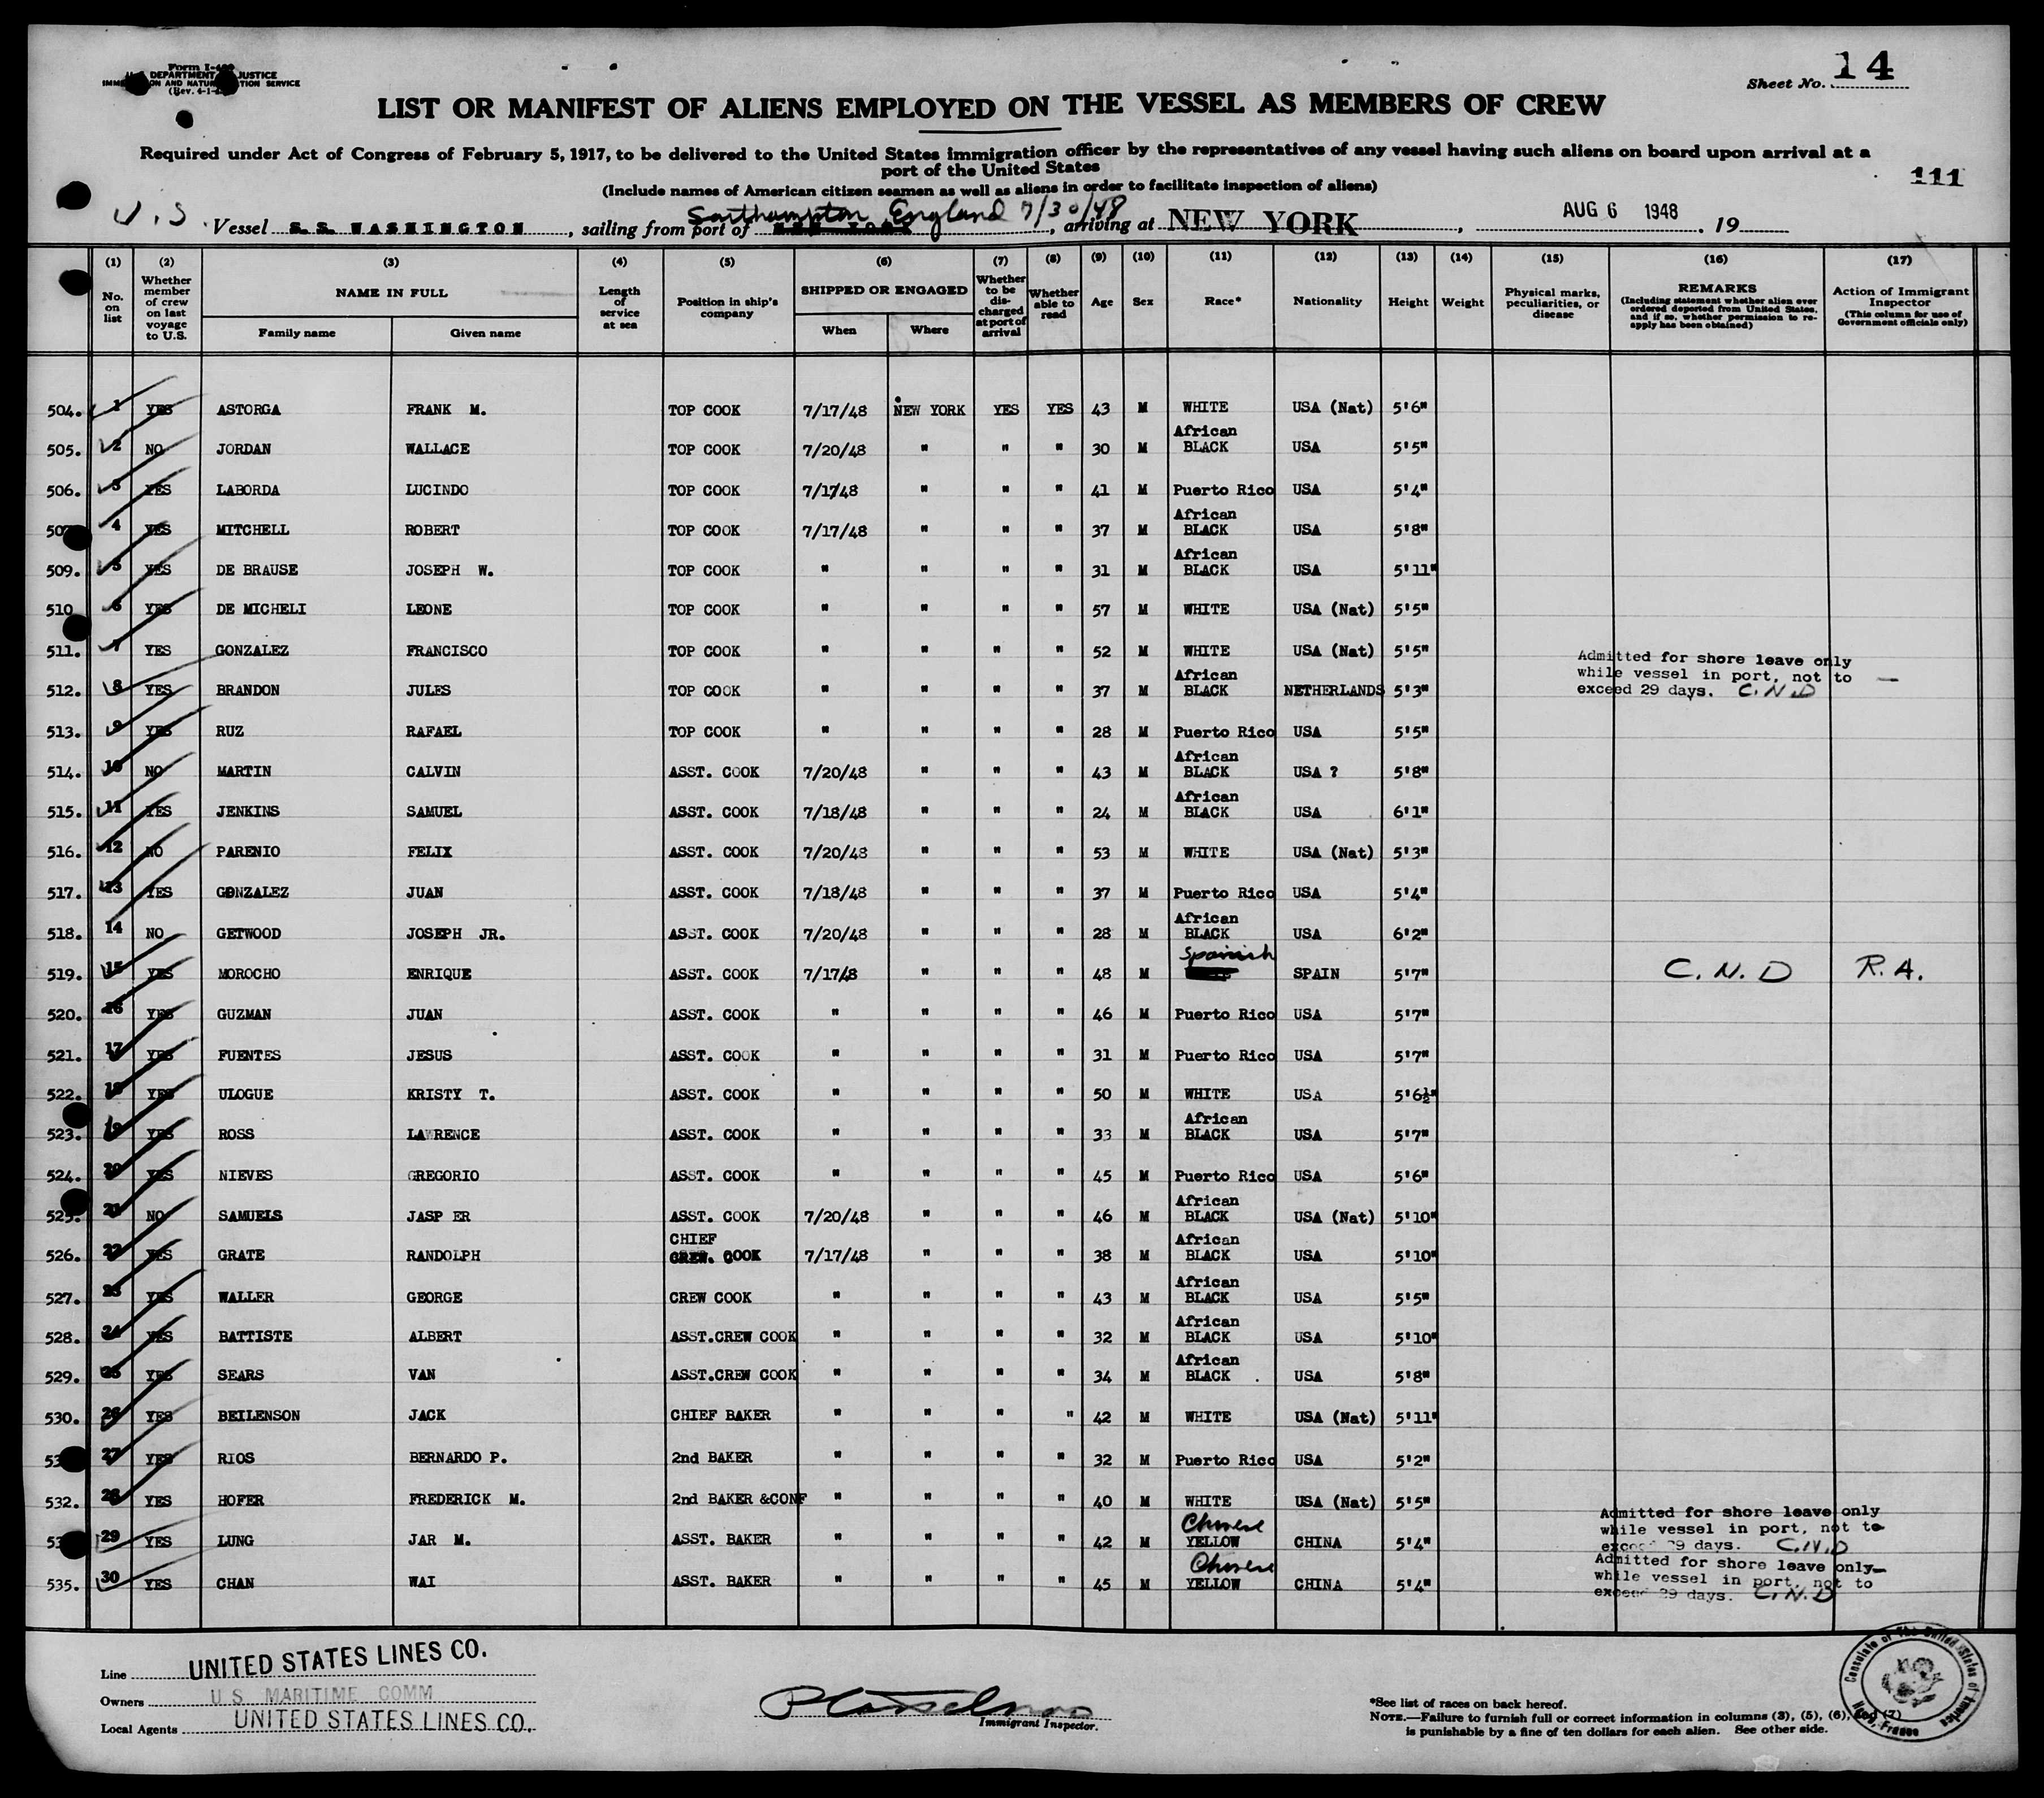 Form I-4
U.S. DEPARTMENT JUSTICE
IMM ON AND NATUR TION SERVICE
(Rev. 4-1-
Sheet No. 14
LIST OR MANIFEST OF ALIENS EMPLOYED ON THE VESSEL AS MEMBERS OF CREW
Required under Act of Congress of February 5, 1917, to be delivered to the United States immigration officer by the representatives of any vessel having such aliens on board upon arrival at a
port of the United States
111
(Include names of American citizen seamen as well as aliens in order to facilitate inspection of aliens)
U.S. Vessel S.S. WASHINGTON, sailing from port of Southampton England 7/30/48, arriving at NEW YORK, AUG 6 1948. 19
(1) (2) (3) (4) (5) (6) (7) (8) (9) (10) (11) (12) (13) (14) (15) (16) (17)
No. on list
Whether member of crew on last voyage to U.S.
NAME IN FULL
Family name
Given name
Length of service at sea
Position in ship's company
SHIPPED OR ENGAGED
When
Where
Whether to be discharged at port of arrival
Whether able to read
Age
Sex
Race*
Nationality
Height
Weight
Physical marks, peculiarities, or disease
REMARKS
(Including statement whether alien ever ordered deported from United States, and if so, whether permission to re-apply has been obtained)
Action of Immigrant Inspector
(This column for use of Government officials only)
504. 1 YES ASTORGA FRANK M. TOP COOK 7/17/48 NEW YORK YES YES 43 M WHITE USA (Nat) 5'6"
505. 2 NO JORDAN WALLACE TOP COOK 7/20/48 " " " 30 M African BLACK USA 5'5"
506. 3 YES LABORDA LUCINDO TOP COOK 7/17/48 " " " 41 M Puerto Rico USA 5'4"
507 4 YES MITCHELL ROBERT TOP COOK 7/17/48 " " " 37 M African BLACK USA 5'8"
509. 5 YES DE BRAUSE JOSEPH W. TOP COOK " " " " 31 M African BLACK USA 5'11"
510 6 YES DE MICHELI LEONE TOP COOK " " " " 57 M WHITE USA (Nat) 5'5"
511. 7 YES GONZALEZ FRANCISCO TOP COOK " " " " 52 M WHITE USA (Nat) 5'5"
512. 8 YES BRANDON JULES TOP COOK " " " " 37 M African BLACK NETHERLANDS 5'3" Admitted for shore leave only while vessel in port, not to exceed 29 days. C.N.D —
513. 9 YES RUZ RAFAEL TOP COOK " " " " 28 M Puerto Rico USA 5'5"
514. 10 NO MARTIN CALVIN ASST. COOK 7/20/48 " " " 43 M African BLACK USA ? 5'8"
515. 11 YES JENKINS SAMUEL ASST. COOK 7/18/48 " " " 24 M African BLACK USA 6'1"
516. 12 NO PARENIO FELIX ASST. COOK 7/20/48 " " " 53 M WHITE USA (Nat) 5'3"
517. 13 YES GONZALEZ JUAN ASST. COOK 7/18/48 " " " 37 M Puerto Rico USA 5'4"
518. 14 NO GETWOOD JOSEPH JR. ASST. COOK 7/20/48 " " " 28 M African BLACK USA 6'2"
519. 15 YES MOROCHO ENRIQUE ASST. COOK 7/17/8 " " " 48 M Spanish SPAIN 5'7" C.N.D R.A.
520. 16 YES GUZMAN JUAN ASST. COOK " " " " 46 M Puerto Rico USA 5'7"
521. 17 YES FUENTES JESUS ASST. COOK " " " " 31 M Puerto Rico USA 5'7"
522. 18 YES ULOGUE KRISTY T. ASST. COOK " " " " 50 M WHITE USA 5'6½"
523. 19 YES ROSS LAWRENCE ASST. COOK " " " " 33 M African BLACK USA 5'7"
524. 20 YES NIEVES GREGORIO ASST. COOK " " " " 45 M Puerto Rico USA 5'6"
525. 21 NO SAMUELS JASP ER ASST. COOK 7/20/48 " " " 46 M African BLACK USA (Nat) 5'10"
526. 22 YES GRATE RANDOLPH CHIEF CREW. COOK 7/17/48 " " " 38 M African BLACK USA 5'10"
527. 23 YES WALLER GEORGE CREW COOK " " " " 43 M African BLACK USA 5'5"
528. 24 YES BATTISTE ALBERT ASST.CREW COOK " " " " 32 M African BLACK USA 5'10"
529. 25 YES SEARS VAN ASST.CREW COOK " " " " 34 M African BLACK USA 5'8"
530. 26 YES BEILENSON JACK CHIEF BAKER " " " " 42 M WHITE USA (Nat) 5'11"
53 27 YES RIOS BERNARDO P. 2nd BAKER " " " " 32 M Puerto Rico USA 5'2"
532. 28 YES HOFER FREDERICK M. 2nd BAKER &CONF " " " " 40 M WHITE USA (Nat) 5'5"
53 29 YES LUNG JAR M. ASST. BAKER " " " " 42 M Chinese YELLOW CHINA 5'4" Admitted for shore leave only while vessel in port, not to exceed 29 days. C.N.D
535. 30 YES CHAN WAI ASST. BAKER " " " " 45 M Chinese YELLOW CHINA 5'4" Admitted for shore leave only while vessel in port, not to exceed 29 days. C.N.D
Line UNITED STATES LINES CO.
Owners U S MARITIME COMM
Local Agents UNITED STATES LINES CO.
Immigrant Inspector.
*See list of races on back hereof.
NOTE.—Failure to furnish full or correct information in columns (3), (5), (6), and (7)
is punishable by a fine of ten dollars for each alien. See other side.
Consulate of The United States of America
France